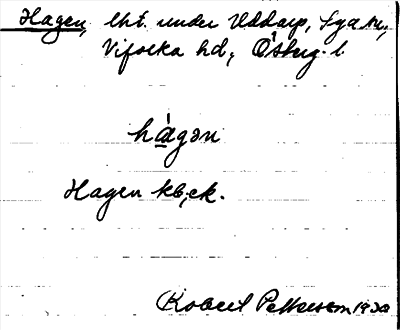 Hagen, lht under Uddarp, Sya sn,
Vifolka hd, Östrg. l.
hàgən
Hagen kb, ek.
Robert Pettersson 1920